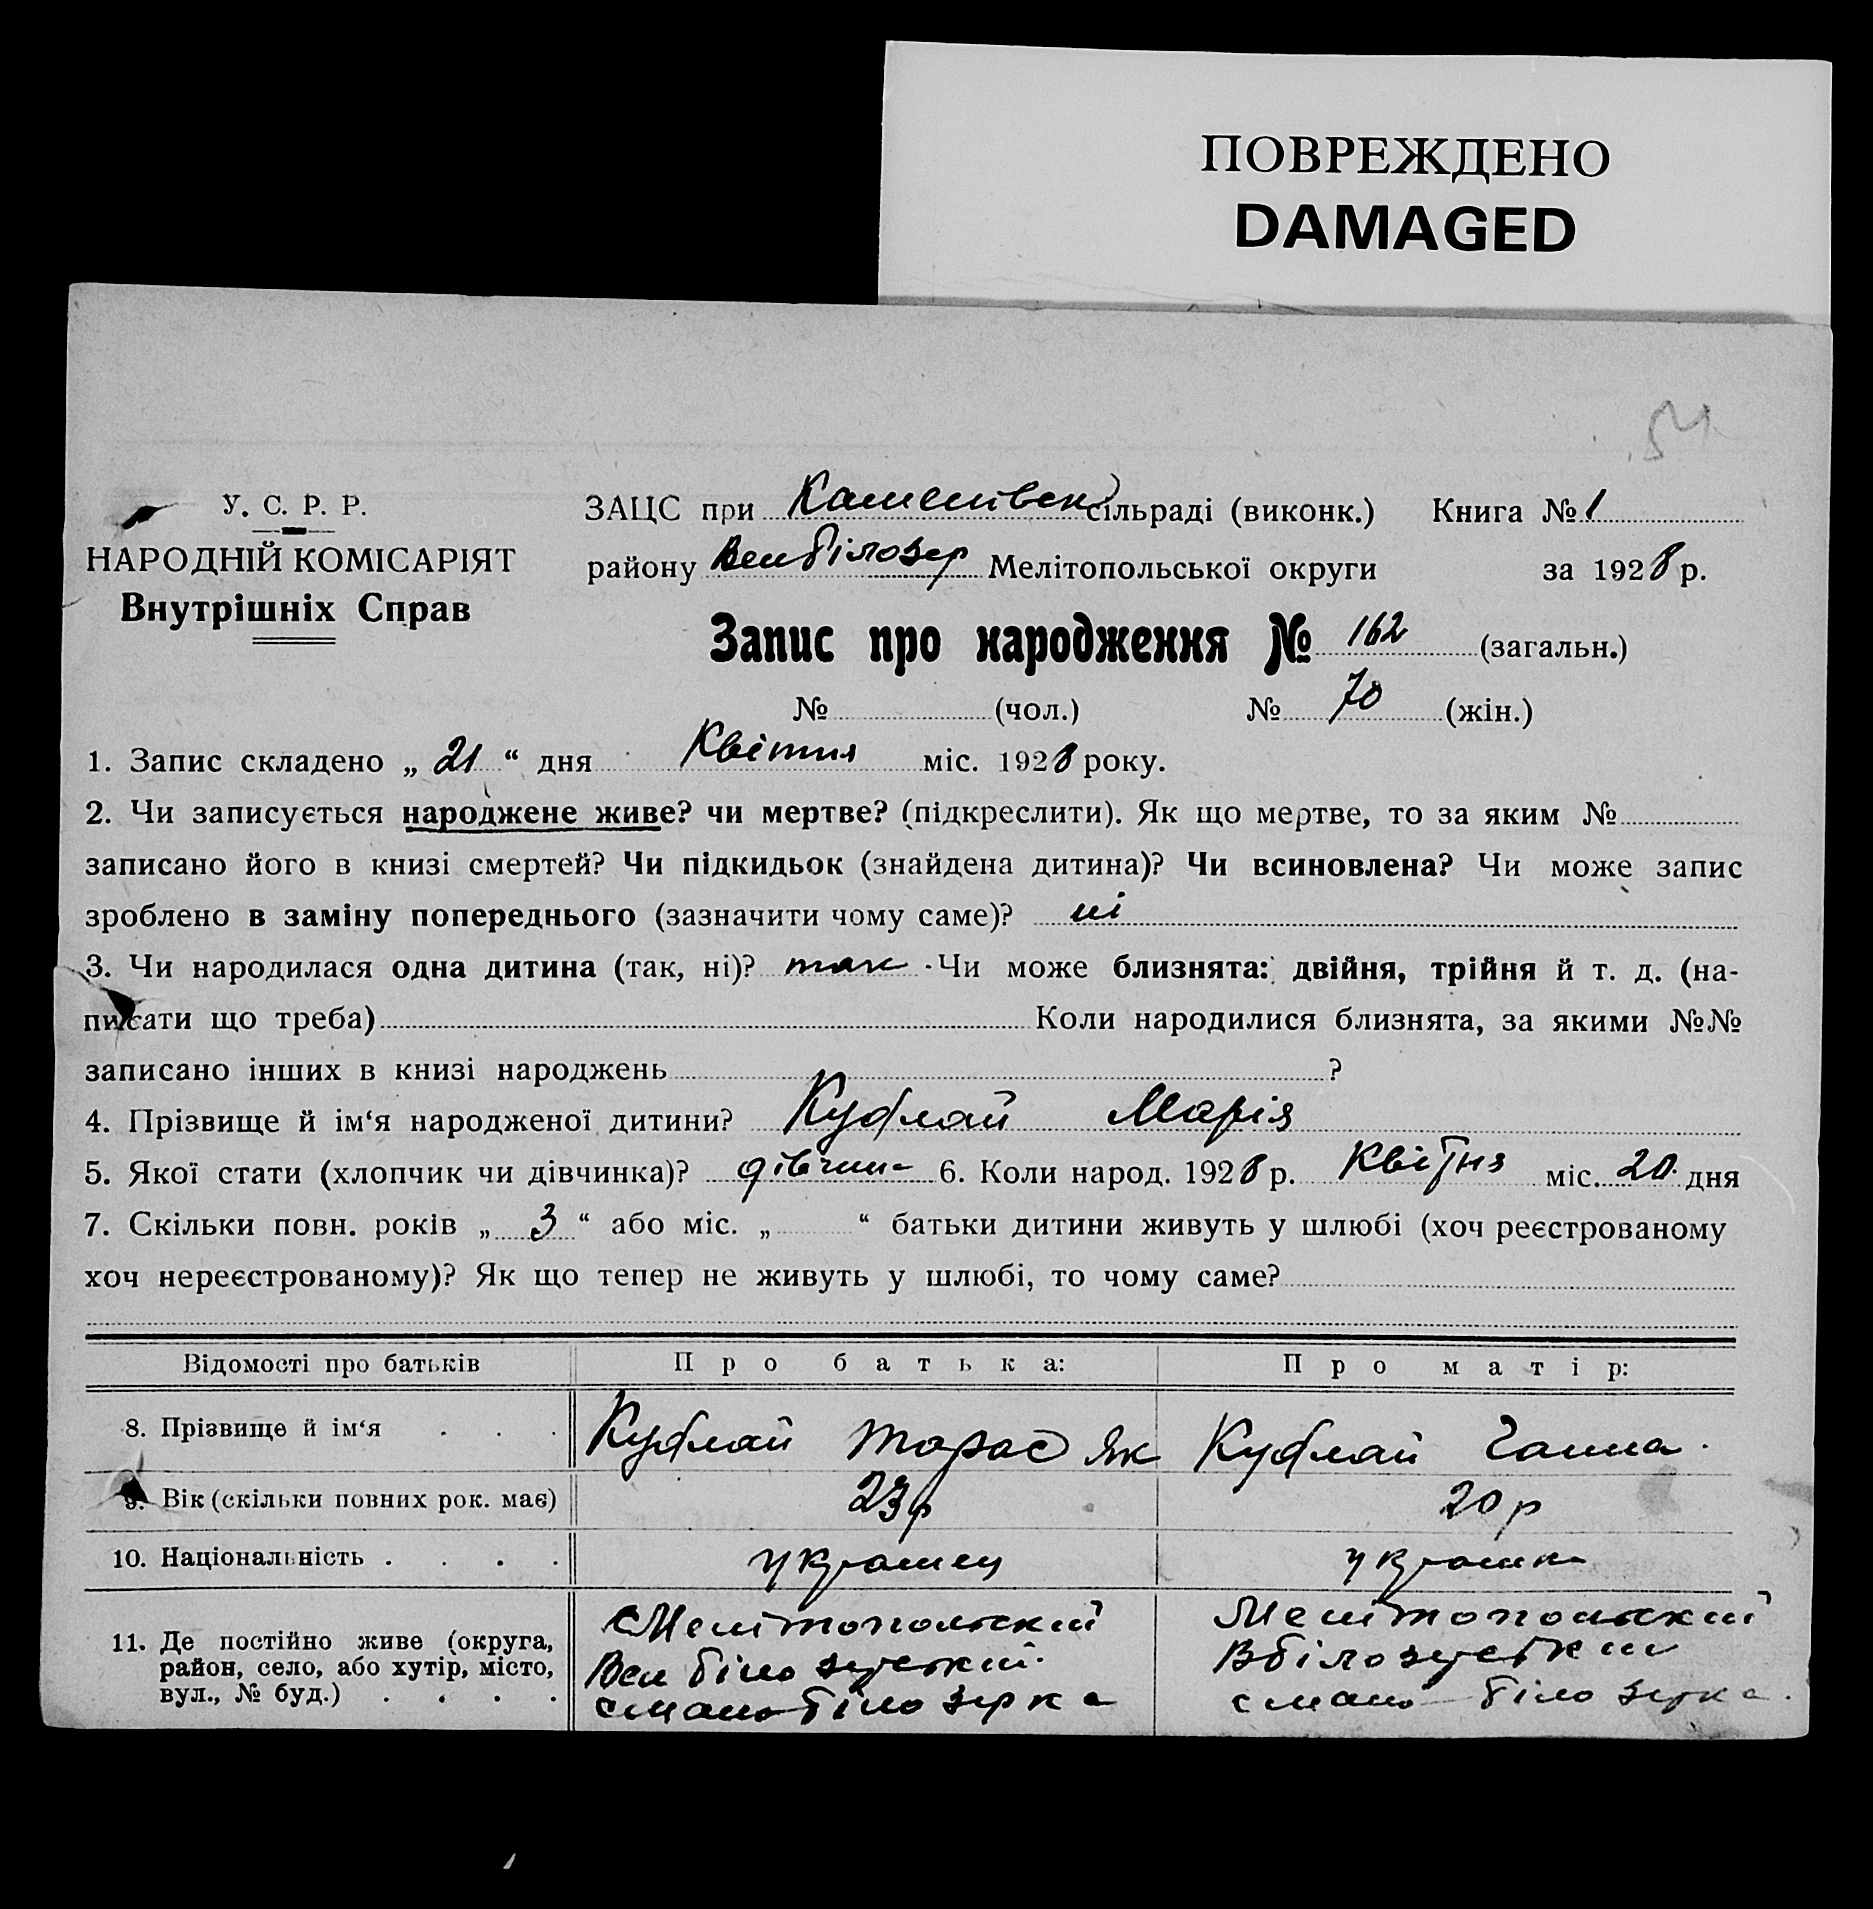 ПОВРЕЖДЕНО
DAMAGED
54
У. С. Р. Р.
НАРОДНІЙ КОМІСАРІЯТ
Внутрішніх Справ
ЗАЦС при сільраді (виконк.) Книга № 1
району Вел білозер Мелітопольської округи за 1928 р.
Запис про народження № 162 (загальн.)
№ (чол.) № 70 (жін.)
1. Запис складено „ 21 “ дня Квітня міс. 1928 року.
2. Чи записується народжене живе? чи мертве? (підкреслити). Як що мертве, то за яким №
записано його в книзі смертей? Чи підкидьок (знайдена дитина)? Чи всиновлена? Чи може запис
зроблено в заміну попереднього (зазначити чому саме)? ні
3. Чи народилася одна дитина (так, ні)? так Чи може близнята: двійня, трійня й т. д. (на-
писати що треба) Коли народилися близнята, за якими №№
записано інших в книзі народжень ?
4. Прізвище й ім‘я народженої дитини? Кублай Марія
5. Якої стати (хлопчик чи дівчинка)? дівчина 6. Коли народ. 1928 р. Квітня міс. 20 дня
7. Скільки повн. років „ 3 “ або міс. „ “ батьки дитини живуть у шлюбі (хоч реєстрованому
хоч нереєстрованому)? Як що тепер не живуть у шлюбі, то чому саме?
Відомості про батьків Про батька: Про матір:
8. Прізвище й ім‘я . . . Кублай Тарас Як Кублай Ганна
9. Вік (скільки повних рок. має) 23 р 20 р
10. Національність . . . . украинец украинка
11. Де постійно живе (округа, район, село, або хутір, місто, вул., № буд.) . . . .
Мелітопольский Мелітопольский
Вел білозерский Вбілозерский
с мало білозерка с мало білозерка